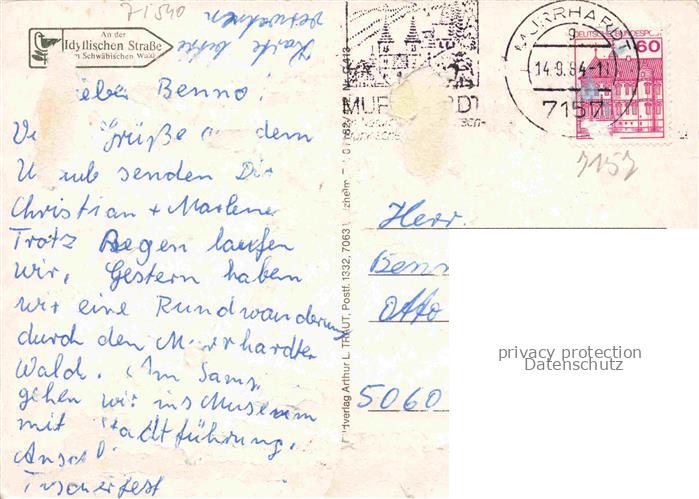 71540
An der
Idyllischen Straße
Schwäbischen Wald
Karte bitte
Benno!
Grüße dem
senden Dir
Christian + Marlene
Trotz Regen laufen
wir. Gestern haben
wir eine Rundwanderung
durch den Murrhardter
Wald. Am Sams
gehen wir ins Museum
mit Stadtführung.
MURRHARDT
g
14.9.84-11
7157
DEUTSCHE BUNDESPOST
60
7157
Bildverlag Arthur L. TRAUT, Postf. 1332, 70631
Herr
Benn
Otto
5060
privacy protection
Datenschutz